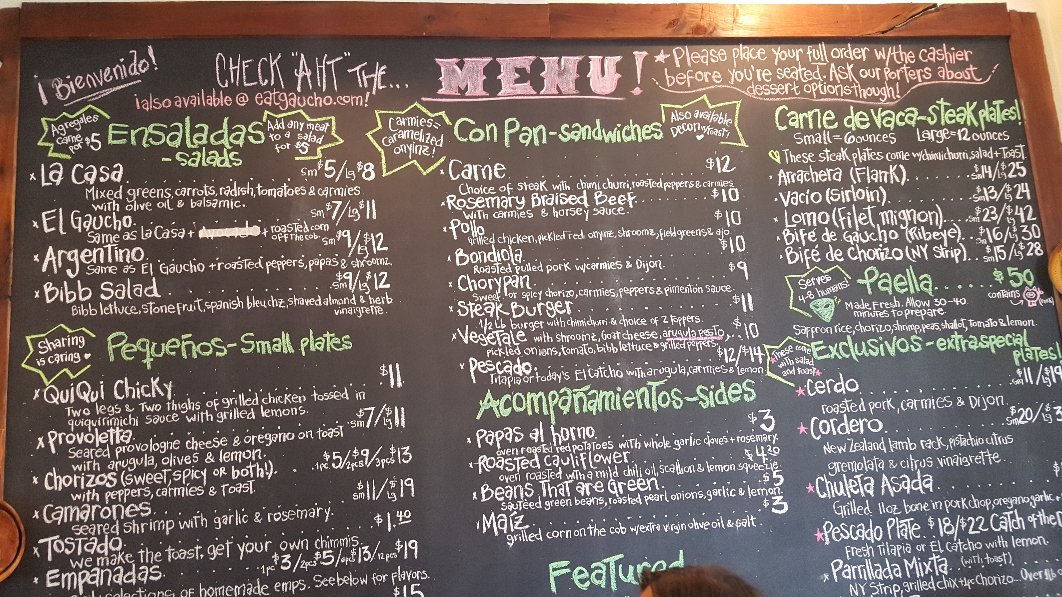 ¡Bienvenido!
CHECK "AHT" THE...
¡also available @ eatgaucho.com!
MENU!
★ Please place your full order w/the cashier
before you're seated. Ask our porters about
dessert options though!
Agregales
carne
por $5
Ensaladas
-salads
Add any meat
to a salad
for $5
x La Casa sm$5/lg$8
Mixed greens, carrots, radish, tomatoes & carmies
with olive oil & balsamic.
x El Gaucho sm$7/lg$11
Same as La Casa + + roasted corn
off the cob.
x Argentino sm$9/lg$12
Same as El Gaucho + roasted peppers, papas & shroomz.
x Bibb Salad $9/$12
Bibb lettuce, stone fruit, spanish bleu chz, shaved almond & herb
vinaigrette.
Sharing
is caring ♥
Pequeños-Small plates
x QuiQui Chicky $11
Two legs & Two thighs of grilled chicken tossed in
quiquirimichi sauce with grilled lemons.
x Provoletta sm$7/lg$11
Seared provologne cheese & oregano on toast
with arugula, olives & lemon.
x Chorizos (sweet, spicy or both!) 1pc$5/2pcs$9/3pcs$13
with peppers, carmies & toast.
x Camarones sm$11/lg$19
seared shrimp with garlic & rosemary.
x Tostado $1.40
we make the toast, get your own chimmis.
x Empanadas 1pc$3/2pcs$5/6pcs$13/12pcs$19
selections of homemade emps. See below for flavors.
$15
Carmies=
caramelized
onyinz!
Con Pan-sandwiches
Also available
Decon
x Carne $12
Choice of steak with chimichurri, roasted peppers & carmies
x Rosemary Braised Beef $10
with carmies & horsey sauce.
x Pollo $10
grilled chicken, pickled red onyinz, shroomz, field greens & ajo.
x Bondiola $10
Roasted pulled pork w/carmies & Dijon.
x Chorypan $9
Sweet or spicy chorizo, carmies, peppers & pimenton sauce.
x Steak Burger $11
1/2 Lb burger with chimichurri & choice of 2 toppers.
x Vegetale with shroomz, goat cheese, arugula pesto, $10
pickled onions, tomato, bibb lettuce & grilled peppers.
x Pescado $12/$14
Tilapia or today's El Catcho with arugula, carmies & lemon
Acompañamientos-sides
x Papas al horno $3
oven roasted red potatoes with whole garlic cloves + rosemary.
x Roasted Cauliflower
oven roasted with a mild chili oil, scallion & lemon squeezie
x Beans That are Green $5
Sauteed green beans, roasted pearl onions, garlic & lemon.
x Maíz $3
grilled corn on the cob w/extra virgin olive oil & salt.
Featured
Carne de vaca-steak plates!
Small=6ounces Large=12ounces
♡ These steak plates come w/chimichurri, salad + Toast.
x Arrachera (Flank) sm$14/lg$25
x Vacio (Sirloin) $13/$24
x Lomo (filet mignon) sm$23/lg$42
x Bifé de Gaucho (Ribeye) sm$16/lg$30
x Bifé de Chorizo (NY Strip) sm$15/lg$28
Serves
4-8 humans!
Paella $50
Made fresh. Allow 30-40
minutes to prepare.
contains
Saffron rice, chorizo, shrimp, peas, shallot, tomato & lemon.
These come
with salad
and toast
Exclusivos-extra special
plates!
★ Cerdo sm$11/lg$19
roasted pork, carmies & Dijon.
★ Cordero sm$20/
New Zealand lamb rack, pistachio citrus
gremolata & citrus vinaigrette.
★ Chuleta Asada
Grilled 11oz bone in pork chop, oregano, garlic
★ Pescado Plate $18/$22 Catch of the
Fresh Tilapia or El Catcho with lemon.
x Parrillada Mixta (with toast)
NY Strip, grilled chix + 4pc chorizo...